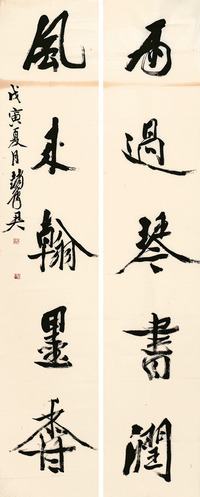 雨過琴書潤
風來翰墨香
戊寅夏月